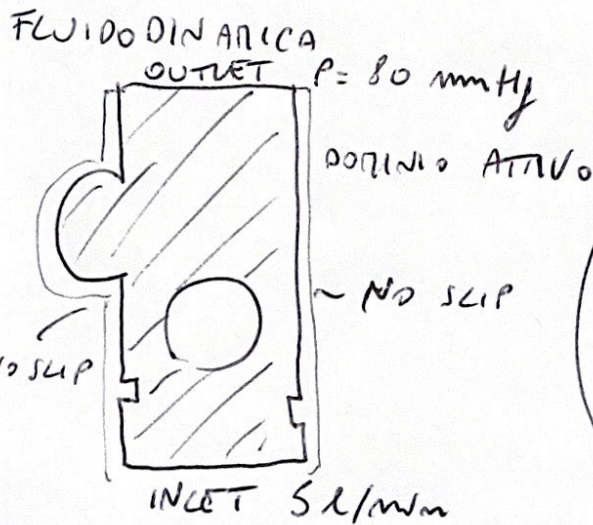 FLUIDODINAMICA
OUTLET P= 80 mmHg
DOMINIO ATTIVO
~ NO SLIP
NO SLIP
INLET 5 l/min